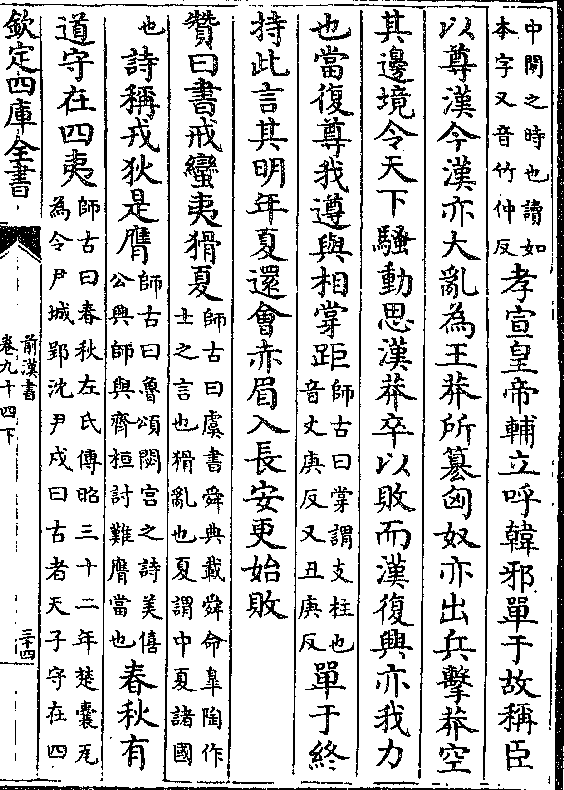 中閒之時也讀如
本字又音竹仲反
孝宣皇帝輔立呼韓邪單于故稱臣
以尊漢今漢亦大亂為王莽所篡匈奴亦出兵擊莽空
其邊境令天下騷動思漢莽卒以敗而漢復興亦我力
也當復尊我遵與相掌距
師古曰掌謂支柱也
音丈庚反又丑庚反
單于終
持此言其明年夏還會赤眉入長安更始敗
贊曰書戒蠻夷猾夏
師古曰虞書舜典載舜命臯陶作
士之言也猾亂也夏謂中夏諸國
也
詩稱戎狄是膺
師古曰魯頌閟宫之詩美僖
公興師與齊桓討難膺當也
春秋有
道守在四夷
師古曰春秋左氏傳昭三十二年楚囊瓦
為令尹城郢沈尹戌曰古者天子守在四
欽定四庫全書
前漢書
卷九十四下